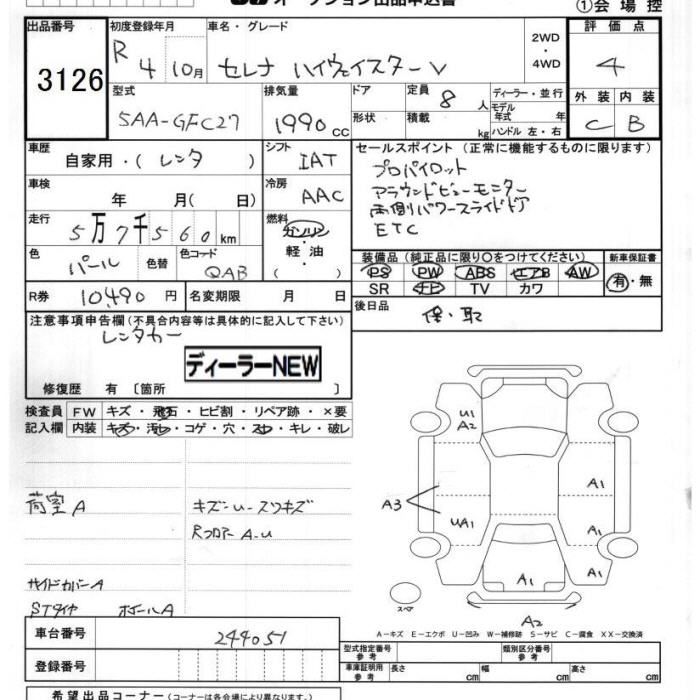 オークション出品申込書 ①会場控
出品番号 初度登録年月 車名・グレード 2WD・4WD 評価点
3126 R 4 10月 セレナ ハイウェイスターV 4
型式 排気量 ドア 定員 8人 ディーラー・並行 外装 内装
5AA-GFC27 1990cc 形状 積載 kg モデル年式 年 ハンドル 左・右 C B
車歴 自家用・(レンタ) シフト IAT セールスポイント(正常に機能するものに限ります)
車検 年 月(日) 冷房 AAC プロパイロット
アラウンドビューモニター
両側パワースライドドア
ETC
走行 5万7千560km 燃料 ガソリン・軽油・( )
色 パール 色替 色コード QAB
装備品(純正品に限り〇をつけてください) 新車保証書
PS PW ABS エアB AW 有・無
SR ナビ TV カワ
R券 10,490円 名変期限 月 日 後日品 保・取
注意事項申告欄(不具合内容等は具体的に記入して下さい)
レンタカー
ディーラーNEW
修復歴 有〔箇所 〕
検査員 FW キズ・飛石・ヒビ割・リペア跡・×要
記入欄 内装 キズ・汚レ・コゲ・穴・スレ・キレ・破レ
荷室A キズ-U-スリキズ
Rフロアー A-U
サイドカバーA
STタイヤ ホイールA
U1
A2
A1
A3
UA1
A1
A1
A1
A1
スペア
A2
A-キズ E-エクボ U-凹み W-補修跡 S-サビ C-腐食 XX-交換済
車台番号 244051
型式指定番号 参考 類別区分番号 参考
登録番号 車庫証明用 参考 長さ cm 幅 cm 高さ cm
希望出品コーナー(コーナーは各会場により異なります)